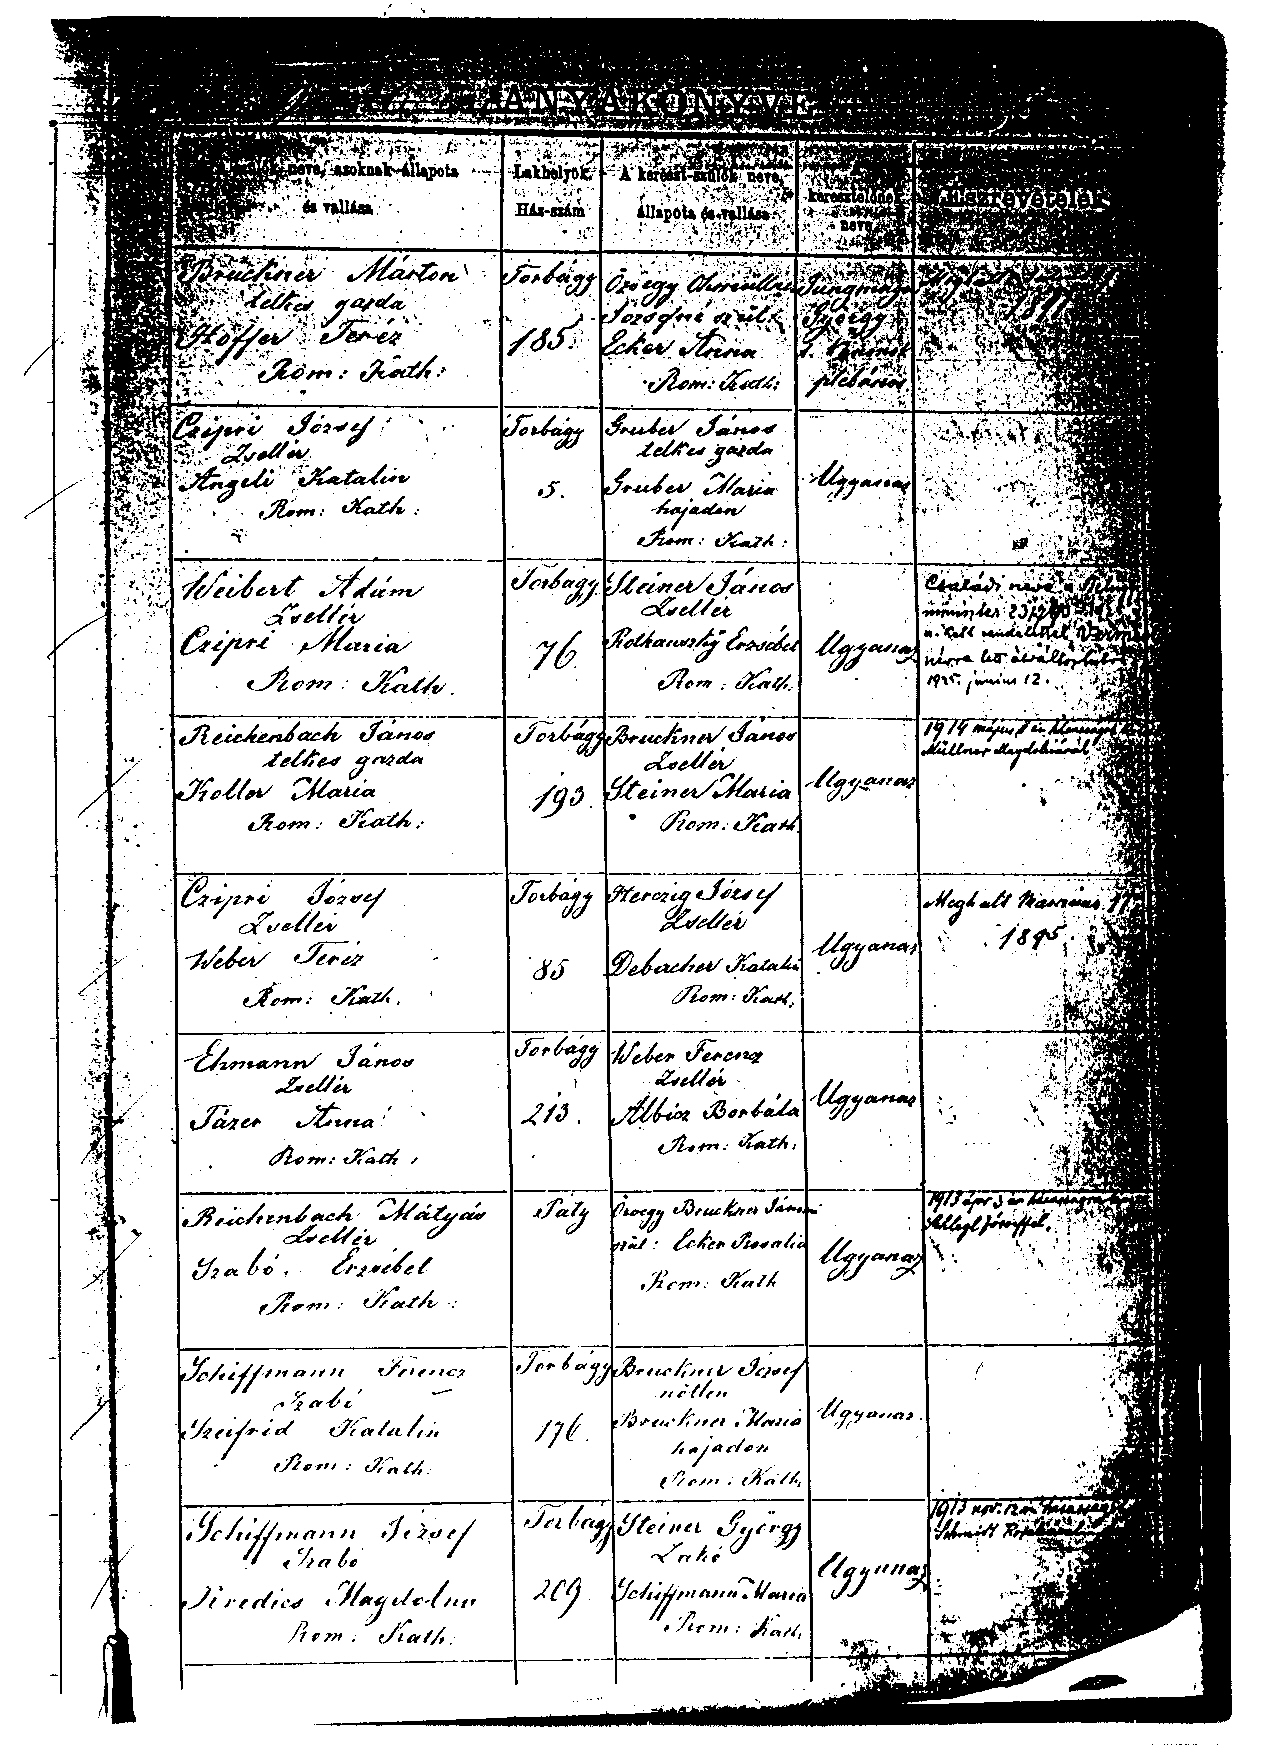 ANYAKÖNYVE
neve, azoknak állapota
és vallása
Lakhelyök.
Ház-szám
A kereszt-szülők neve,
állapota és vallása
keresztelőnek
neve
Észrevételek
Bruckner Márton
telkes gazda
Höffer Teréz
Rom: Kath:
Torbágy
185.
Özvegy
Józsefné szül:
Ecker Anna
Rom: Kath:
György
plébános
Czipri József
Zsellér
Angeli Katalin
Rom: Kath:
Torbágy
5.
Gruber János
telkes gazda
Gruber Maria
hajadon
Rom: Kath:
Ugyanaz
Weibert Ádám
Zsellér
Czipri Maria
Rom: Kath.
Torbágy
76
Steiner János
Zsellér
Erzsébet
Rom: Kath.
Ugyanaz
Családi neve a
miniszter
névre lett
1925. június 12.
Reichenbach János
telkes gazda
Koller Maria
Rom: Kath:
Torbágy
193.
Bruckner János
Zsellér
Steiner Maria
Rom: Kath
Ugyanaz
1914 május
Müllner Magdolnával
Czipri József
Zsellér
Weber Teréz
Rom: Kath.
Torbágy
85
Herczig József
Zsellér
Debacher Katalin
Rom: Kath.
Ugyanaz
Meghalt Március 17
1895.
Ehmann János
Zsellér
Tázer Anna
Rom: Kath.
Torbágy
213.
Weber Ferencz
Zsellér
Albicz Borbála
Rom: Kath.
Ugyanaz
Reichenbach Mátyás
Zsellér
Szabó Erzsébet
Rom: Kath:
Páty
Özvegy Bruckner János
szül: Ecker Rosalia
Rom: Kath
Ugyanaz
1913 ápr. 3 án
Schiffmann Ferencz
Szabó
Szeifrid Katalin
Rom: Kath:
Torbágy
176.
Bruckner József
nőtlen
Bruckner Maria
hajadon
Rom: Kath.
Ugyanaz
Schiffmann József
Szabó
Magdolna
Rom: Kath:
Torbágy
209
Steiner György
Lakó
Schiffmann Maria
Rom: Kath.
Ugyanaz
1913 nov.
Schmidt